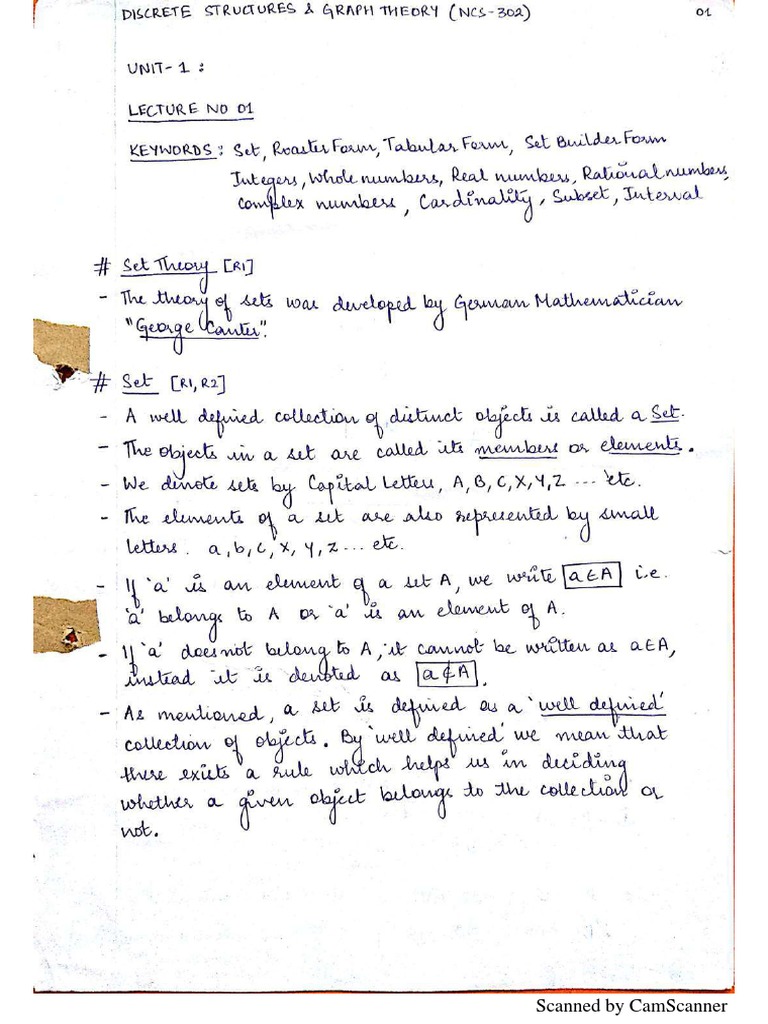 DISCRETE STRUCTURES & GRAPH THEORY (NCS-302) 01
UNIT-1:
LECTURE NO 01
KEYWORDS: Set, Roaster Form, Tabular Form, Set Builder Form
Integers, Whole numbers, Real numbers, Rational numbers,
complex numbers, Cardinality, Subset, Interval
# Set Theory [R1]
- The theory of sets was developed by German Mathematician
"George Canter".
# Set [R1, R2]
- A well defined collection of distinct objects is called a Set.
- The objects in a set are called its members or elements.
- We denote sets by Capital Letters, A, B, C, X, Y, Z .... etc.
- The elements of a set are also represented by small
letters. a, b, c, x, y, z ... etc.
- If 'a' is an element of a set A, we write a∈A i.e.
'a' belongs to A or 'a' is an element of A.
- If 'a' does not belong to A, it cannot be written as a∈A,
instead it is denoted as a∉A.
- As mentioned, a set is defined as a 'well defined'
collection of objects. By 'well defined' we mean that
there exists a rule which helps us in deciding
whether a given object belongs to the collection or
not.
Scanned by CamScanner